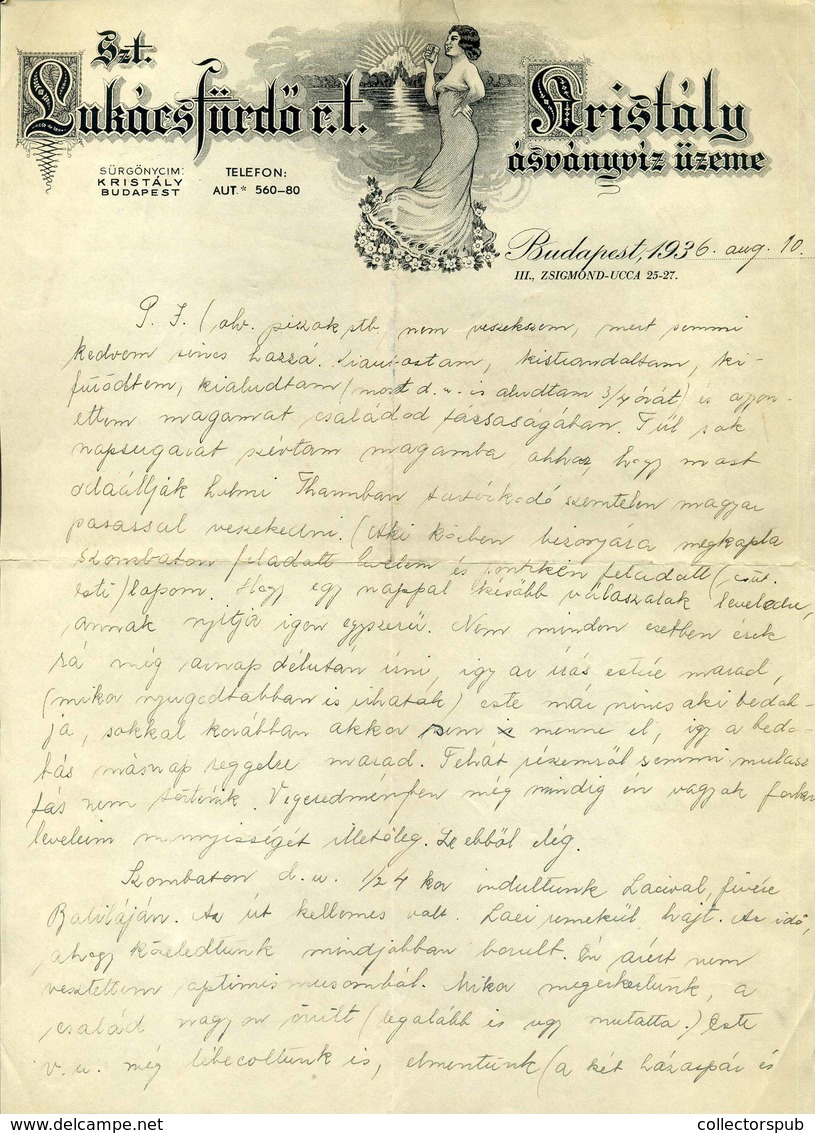 Szt.
Lukácsfürdő r.t.
Kristály
ásványvíz üzeme
SÜRGÖNYCIM:
KRISTÁLY
BUDAPEST
TELEFON:
AUT.* 560-80
Budapest, 1936. aug. 10.
III., ZSIGMOND-UCCA 25-27.
P. J. (olv. piszok stb. nem veszekszem, mert semmi
kedvem sincs hozzá. Kiautóztam, kistrandoltam, ki-
fürödtem, kialudtam (most d. u. is aludtam 3/4 órát) és
ettem magamat családod társaságában. Túl sok
napsugarat szívtam magamba ahhoz, hogy most
odaálljak holmi Thannban tartózkodó szemtelen magyar
pasassal veszekedni. (Aki közben bizonyára megkapta
szombaton feladott levelem és pénteken feladott
esti) lapom. Hogy egy nappal később válaszolok leveledre,
annak nyitja igen egyszerű. Nem minden esetben érek
rá még aznap délután írni, így az írás estére marad,
(mikor nyugodtabban is írhatok) este már nincs aki bedob-
ja, sokkal korábban akkor sem menne el, így a bedo-
bás másnap reggelre marad. Tehát részemről semmi mulasz
tás nem történik. Végeredményben még mindig én vagyok
leveleim mennyiségét illetőleg. De ebből elég.
Szombaton d. u. 1/2 4 kor indultunk Lacival, fivére
Balilláján. Az út kellemes volt. Laci remekül hajt. Az idő,
ahogy közeledtünk mindjobban borult. Én azért nem
vesztettem optimismusomból. Mikor megérkeztünk, a
család nagyon örült (legalább is úgy mutatta.) Este
v. u. még lébecoltunk is, elmentünk (a két házaspár és
collectorspub